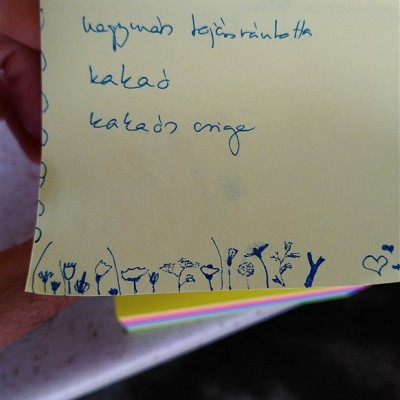 hagymás tojásrántotta
kakaó
kakaós csiga